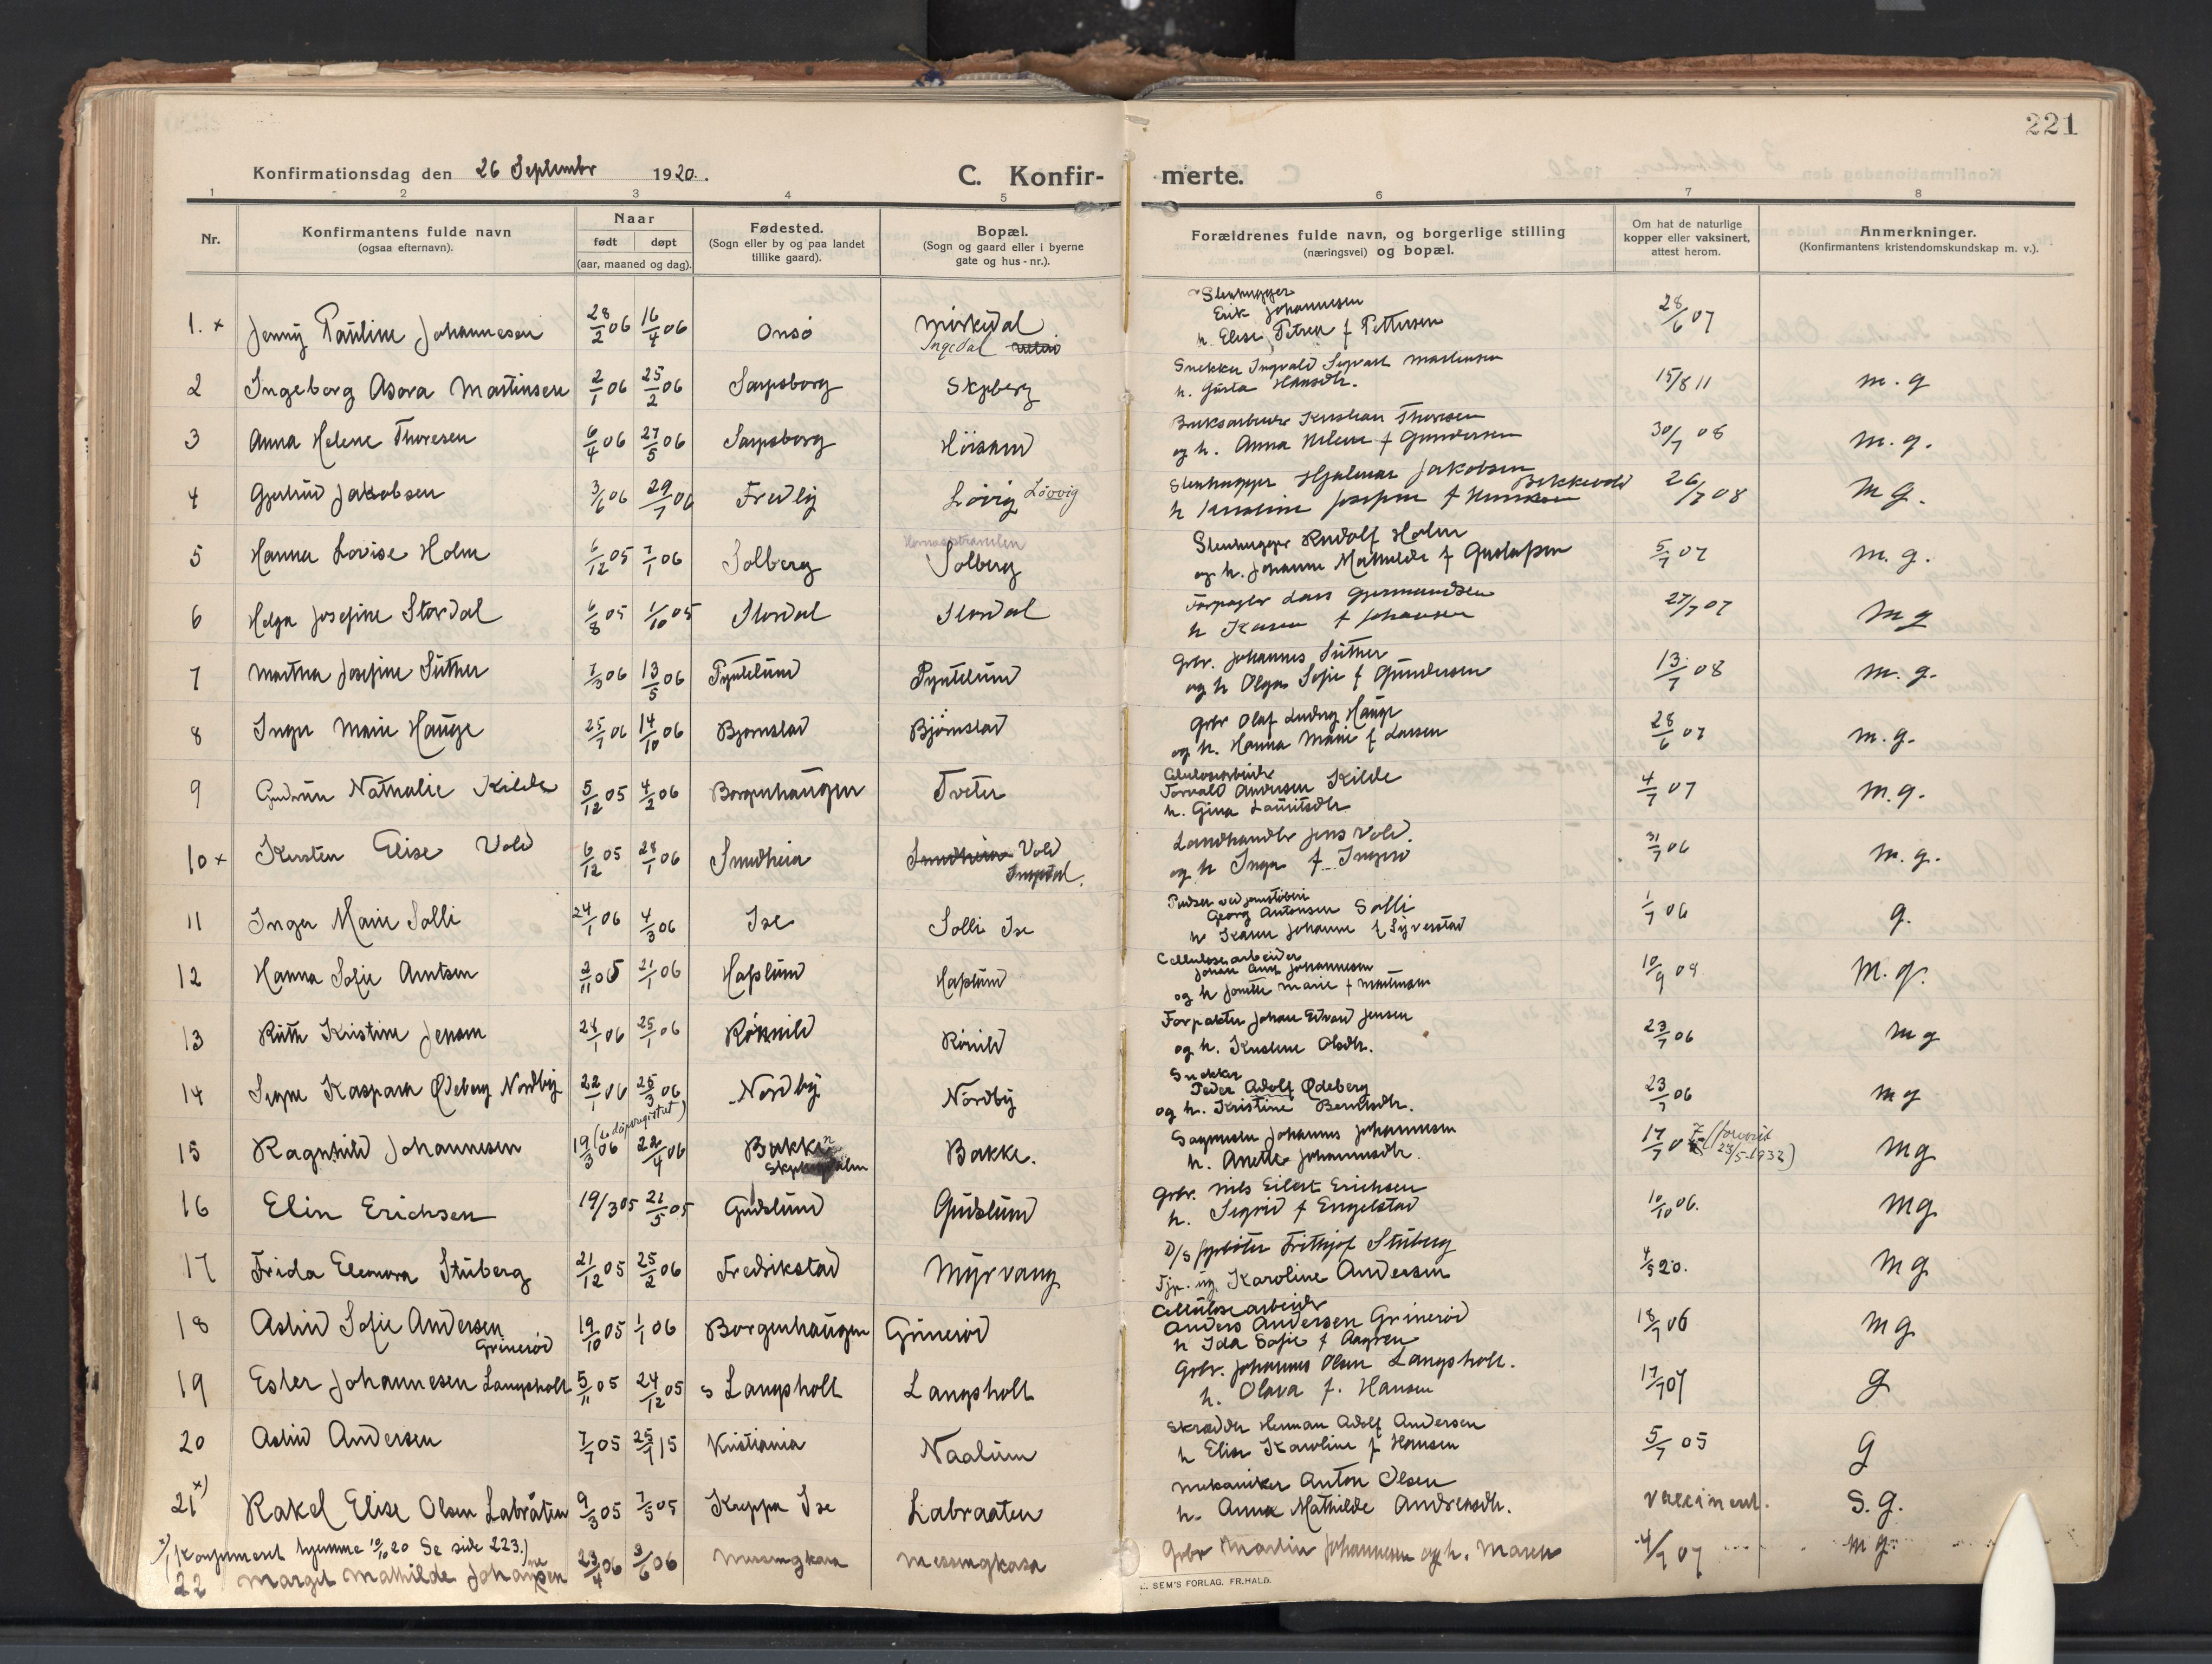 221
Konfirmationsdag den 26 Septembr 1920.
C. Konfir- merte.
1 2 3 4 5 6 7 8
Nr.
Konfirmantens fulde navn
(ogsaa efternavn).
Naar
født døpt
(aar, maaned og dag).
Fødested.
(Sogn eller by og paa landet
tillike gaard).
Bopæl.
(Sogn og gaard eller i byerne
gate og hus-nr.).
Forældrenes fulde navn, og borgerlige stilling
(næringsvei) og bopæl.
Om hat de naturlige
kopper eller vaksinert,
attest herom.
Anmerkninger.
(Konfirmantens kristendomskundskap m. v.).
1. x Jenny Pauline Johannesen 28/2 06 16/4 06 Onsö Mörkedal Ingedal
Stenhugger
Erik Johannesen
h. Elise Petrea f Pettersen 28/6 07
2 Ingeborg Asora Martinsen 2/1 06 25/2 06 Sarpsborg Skjeberg
Snekker Ingvald Segvart Martinsen
h. Gusta Hansdtr. 15/8 11 m.g
3 Anna Helene Thoresen 6/4 06 27/5 06 Sarpsborg Höisand
Bruksarbeider Kristian Thoresen
og h. Anna Milene f Gundersen 30/7 08 m.g.
4 Gjertrud Jakobsen 3/6 06 29/7 06 Fredly Lövig Lövvig
Stenhugger Hjalmar Jakobsen Bekkevold
h Kristine Josefine f 26/7 08 M g.
5 Hanna Lovise Holm 6/12 05 7/1 06 Solberg Solberg
Stenhugger Rudolf Holm
og h. Johanne Mathilde f Gustafsen 5/7 07 m.g.
6 Helga Josefine Stordal 6/8 05 1/10 05 Stordal Stordal
Forpagter Lars Gjermundsen
h Karen f Johansen 27/7 07 m g
7 Martha Josefine Süther 7/3 06 13/5 06 Pyntelund Pyntelund
Grbr. Johannes Süther
og h Olga Sofie f Gundersen 13/7 08 m.g.
8 Inger Marie Hauge 25/7 06 14/10 06 Bjornstad Björnstad
Grbr Olaf Ludvig Hauge
og h. Hanna Marie f Larsen 28/6 07 m.g.
9 Gudrun Nathalie Kilde 5/12 05 4/2 06 Borgenhaugen Tveter
Celulosearbeider
Torvald Andersen Kilde
h. Gina Lauritsdtr 4/7 07 m.g.
10 x Kirsten Elise Vold 6/12 05 28/1 06 Smedheia Smedheia Vold
Ingedal.
Landhandler Jens Vold.
og h Inga f. 31/7 06 m.g.
11 Inger Marie Solli 24/1 06 4/3 06 Ise Solli Ise
Georg Antonsen Solli
h Karen Johanne f Syverstad 1/7 06 g.
12 Hanna Sofie Arntsen 2/11 05 21/1 06 Haslund Haslund
Cellulosearbeider
Johan Johannesen
og h Jonette Marie f Martinsen 10/9 08 M.g.
13 Ruth Kristine Jensen 28/1 06 25/1 06 Rönnild Rönild
Forpakter Johan Edvard Jensen
og h. Kristine Olsdtr. 23/7 06 m g
14 Signe Kaspara Ødeberg Nordby 22/1 06 25/3 06 Nordby Nordby
Snekker
Peder Adolf Ødeberg
og h. Kristine Berntsdtr. 23/7 06 m g
15 Ragnhild Johannesen 19/3 06 22/4 06 Bakken Bakke.
Sagmester Johannes Johannesen
h. Anette Johannesdtr. 17/7 07 23/5-1932) mg
16 Elin Erichsen 19/3 05 21/5 05 Gudslund Gudslund
Grbr. Nils Eilert Erichsen
h. Sigrid f Engelstad 10/10 06. mg
17 Frida Eleonora Stuberg 21/12 05 25/2 06 Fredrikstad Myrvang
D/s fyrböter Frithjof Stuberg
Karoline Andersen 4/5 20. mg
18 Astrid Sofie Andersen
Grinerød 19/10 05 1/1 06 Borgenhaugen Grinerød
Cellulosearbeider
Anders Andersen Grinerød
h Ida Sofie f Aagren 18/7 06 mg
19 Ester Johannesen Langsholt 5/11 05 24/12 05 s Langsholt Langsholt
Grbr. Johannes Olsen Langsholt.
h. Olava f. Hansen 17/7 07 g
20 Astrid Andersen 7/7 05 25/7 15 Kristiania Naalum
Skrædder Herman Adolf Andersen
h Elise Karoline f Hansen 5/7 05 g
21 x) Rakel Elise Olsen Labråten 9/3 05 7/5 05 Kreppa Ise Labraaten
Mekaniker Anton Olsen
h. Anna Mathilde Andreasdtr. vaccinert. S.g.
x) (Konfirmert hjemme 10/10 20 Se side 223.)
22 Margit Mathilde Johansen 23/4 06 3/6 06 Messingkasa Messingkasa
Grbr Martin Johannesen og h. Maren 4/7 07 m g.
SEM'S FORLAG. FR.HALD.